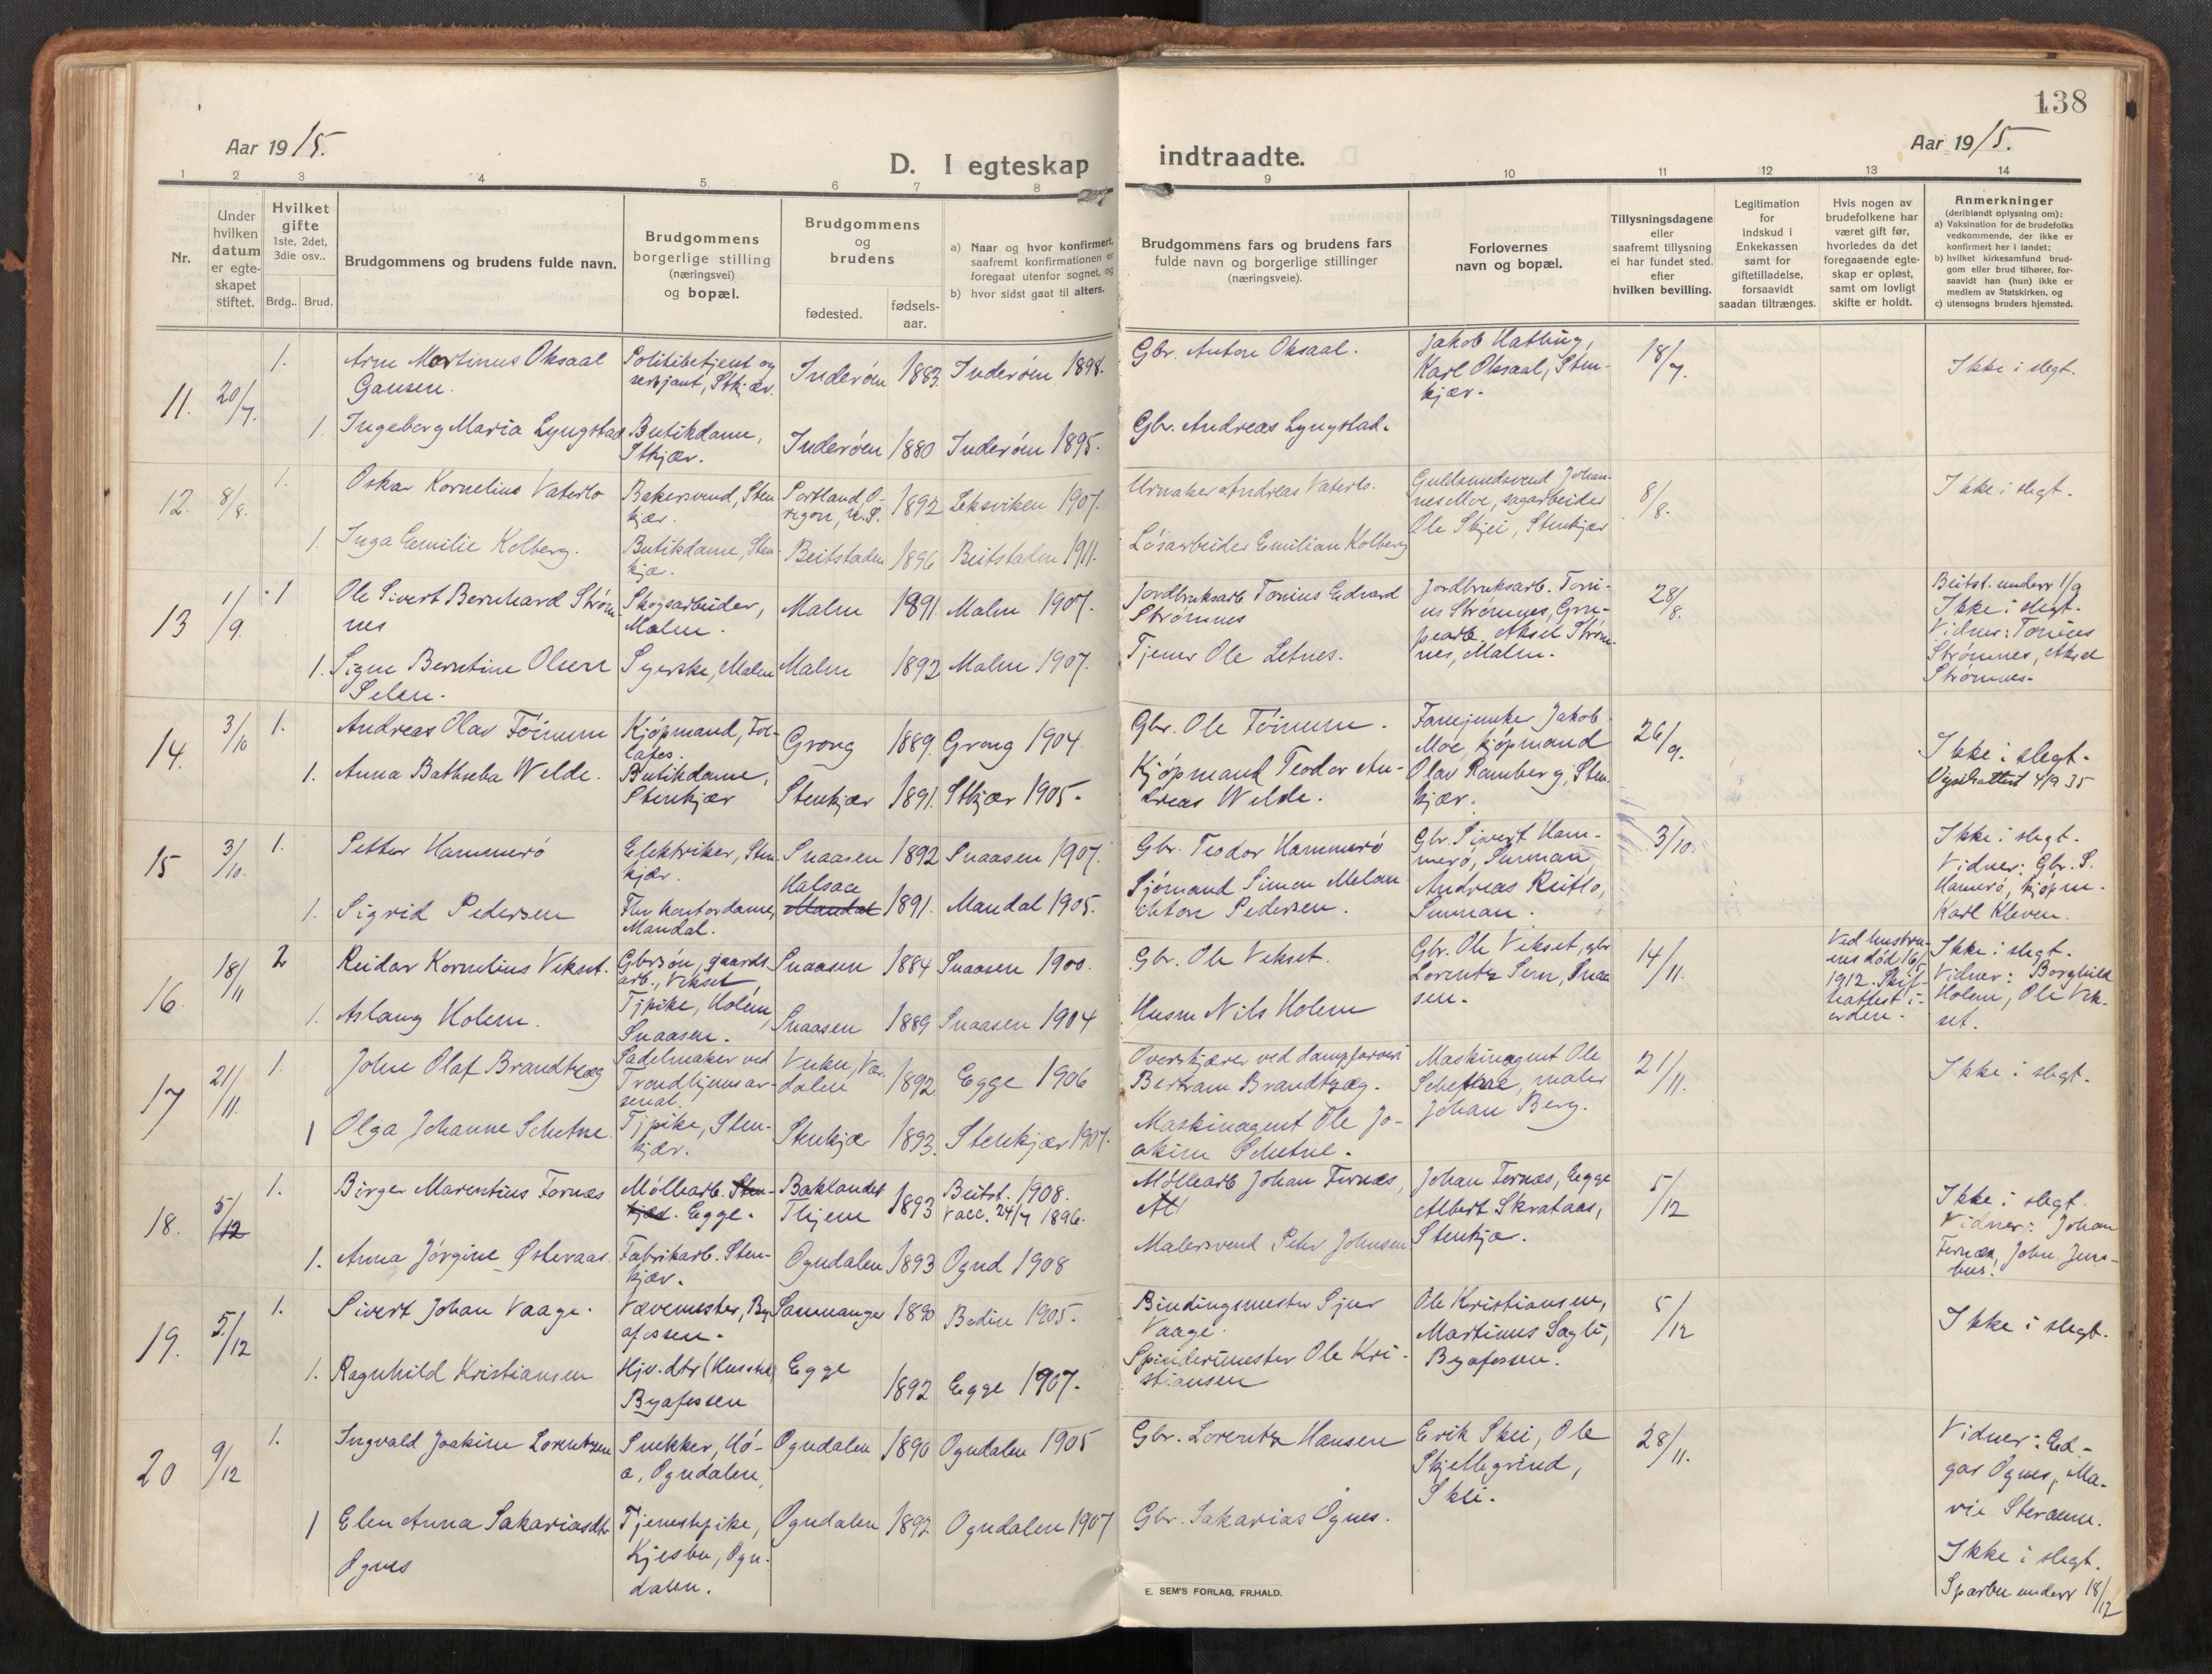 138
Aar 1915.
D. I egteskap indtraadte.
Aar 1915.
1 2 3 4 5 6 7 8 9 10 11 12 13 14
Nr.
Under hvilken datum er egteskapet stiftet.
Hvilket gifte
1ste, 2det, 3die osv..
Brdg.. Brud.
Brudgommens og brudens fulde navn.
Brudgommens borgerlige stilling (næringsvei) og bopæl.
Brudgommens og brudens
fødested.
fødsels-aar.
a) Naar og hvor konfirmert, saafremt konfirmationen er foregaat utenfor sognet, og
b) hvor sidst gaat til alters.
Brudgommens fars og brudens fars fulde navn og borgerlige stillinger (næringsveie).
Forlovernes navn og bopæl.
Tillysningsdagene eller saafremt tillysning ei har fundet sted, efter hvilken bevilling.
Legitimation for indskud i Enkekassen samt for giftetilladelse, forsaavidt saadan tiltrænges.
Hvis nogen av brudefolkene har været gift før, hvorledes da det foregaaende egteskap er opløst, samt om lovligt skifte er holdt.
Anmerkninger
(deriblandt oplysning om):
a) Vaksination for de brudefolks vedkommende, der ikke er konfirmert her i landet;
b) hvilket kirkesamfund brudgom eller brud tilhører, forsaavidt han (hun) ikke er medlem av Statskirken, og
c) utensogns bruders hjemsted.
11. 20/7. 1. Arne Martinus Oksaal Gausen. Politibetjent og serjant, Stkjær. Inderøen 1883. Inderøen 1898. Gbr. Anton Oksaal. Jakob Hatling, Karl Oksaal, Stenkjær. 18/7. Ikke i slegt.
1. Ingeborg Maria Lyngstad Butikdame, Stkjær. Inderøen 1880 Inderøen 1895. Gbr. Andreas Lyngstad.
12. 8/8. 1. Oskar Kornelius Vaterlo Bakersvend, Stenkjær. Portland Oregon, U.S. 1892 Leksviken 1907. Urmaker Andreas Vaterlo. Guldsmedsvend Johannes Moe, sagarbeider Ole Skjei, Stenkjær 8/8. Ikke i slegt.
1. Inga Emilie Kolberg. Butikdame, Stenkjæ. Beitstaden 1896 Beitstaden 1911. Løsarbeider Emilian Kolberg
13 1/9. 1 Ole Sivert Bernhard Strømnes Skogsarbeider, Malm. Malm 1891. Malm 1907. Jordbruksarb Tonius Edvard Strømnes Jordbruksarb. Tonius Strømnes, Grubearb. Aksel Strømnes, Malm. 28/8. Beitst. underr 1/9 Ikke i slegt. Vidner: Tonius Strømnes, Aksel Strømnes.
1. Signe Berntine Olsen Selen. Syerske, Malm Malm 1892 Malm 1907. Tjener Ole Letnes.
14. 3/10 1. Andreas Olav Føinum Kjøpmand, Follafos. Grong 1889. Grong 1904. Gbr. Ole Føinum. Fanejunker Jakob Moe, kjøpmand Olav Ramberg, Stenkjær. 26/9. Ikke i slegt. Vigselsattest 4/9 35
1. Anna Bathseba Welde. Butikdame, Stenkjær Stenkjær 1891. Stkjær 1905. Kjøpmand Teodor Andreas Welde.
15 3/10. 1. Petter Hammerø Elektriker, Stenkjær. Snaasen 1892 Snaasen 1907. Gbr. Teodor Hammerø Gbr. Sivert Hammerø, Sunnan, Andreas Reitlo, Sunnan. 3/10. Ikke i slegt. Vidner: Gbr. S. Hamerø, kjøpm. Karl Kleven.
1. Sigrid Pedersen Fhv kontordame, Mandal. Halsaa Mandal 1891. Mandal 1905. Sjømand Simen Melankton Pedersen.
16. 18/11 2 Reidar Kornelius Vekset. Gbrsøn, gaardsarb., Vekset Snaasen 1884 Snaasen 1900. Gbr. Ole Vekset. Gbr. Ole Vekset, gbr Lorentz Sem, Snaasen. 14/11. Ved hustruens død 16/5 1912. Skifteattest i orden. Ikke i slegt. Vidner: Borghild Holem, Ole Vekset.
1. Aslaug Holem. Tjpike, Holem, Snaasen. Snaasen 1889 Snaasen 1904 Husm Nils Holem
17 21/11. 1. John Olaf Brandtzæg Sadelmaker ved Trondhjems arsenal. Vuku, Værdalen 1892 Egge 1906 Overskjærer ved dampfarveri Bertram Brandtzæg. Maskinagent Ole Schetne, maler Johan Berg. 21/11. Ikke i slegt.
1 Olga Johanne Schetne Tjpike, Stenkjær. Stenkjæ 1893. Stenkjær 1907. Maskinagent Ole Joakim Schetne.
18. 5/12 1. Birger Marentius Fornæs Møllearb. Stenkjær. Egge. Baklandet Thjem 1893 Beitst. 1908. Vacc. 24/7 1896. Møllearb Johan Fernæs, Johan Fernæs, Egge Albert Skrataas, Stenkjæ. 5/12 Ikke i slegt. Vidner: Johan Fernæs, John Jenshus.
1. Anna Jørgine Østeraas. Fabrikarb. Stenkjær. Ogndalen 1893 Ognd 1908 Malersvend Peter Johnsen
19. 5/12 1. Sivert Johan Vaage. Vævemester, Byafossen. Sammanger 1890 Bodin 1905. Bindingsmester Sjur Vaage. Ole Kristiansen, Martinus Sagli, Byafossen. 5/12 Ikke i slegt.
1. Ragnhild Kristiansen Hjv. dtr (Husstel) Byafossen Egge 1892 Egge 1907. Spinderimester Ole Kristiansen
20 9/12 1. Ingvald Joakim Lorentzen Snekker, Møa, Ogndalen, Ogndalen 1890 Ogndalen 1905 Gbr. Lorentz Hansen Erik Skei, Ole Skjellegrind, Skei. 28/11. Vidner: Edgar Ognes, Marie Steraune. Ikke i slegt. Sparbu underr 18/12
1 Elen Anna Sakariasdtr Ognes Tjenestepike, Kjesbu, Ogndalen. Ogndalen 1892 Ogndalen 1907 Gbr. Sakarias Ognes.
E. SEM'S FORLAG, FR.HALD.